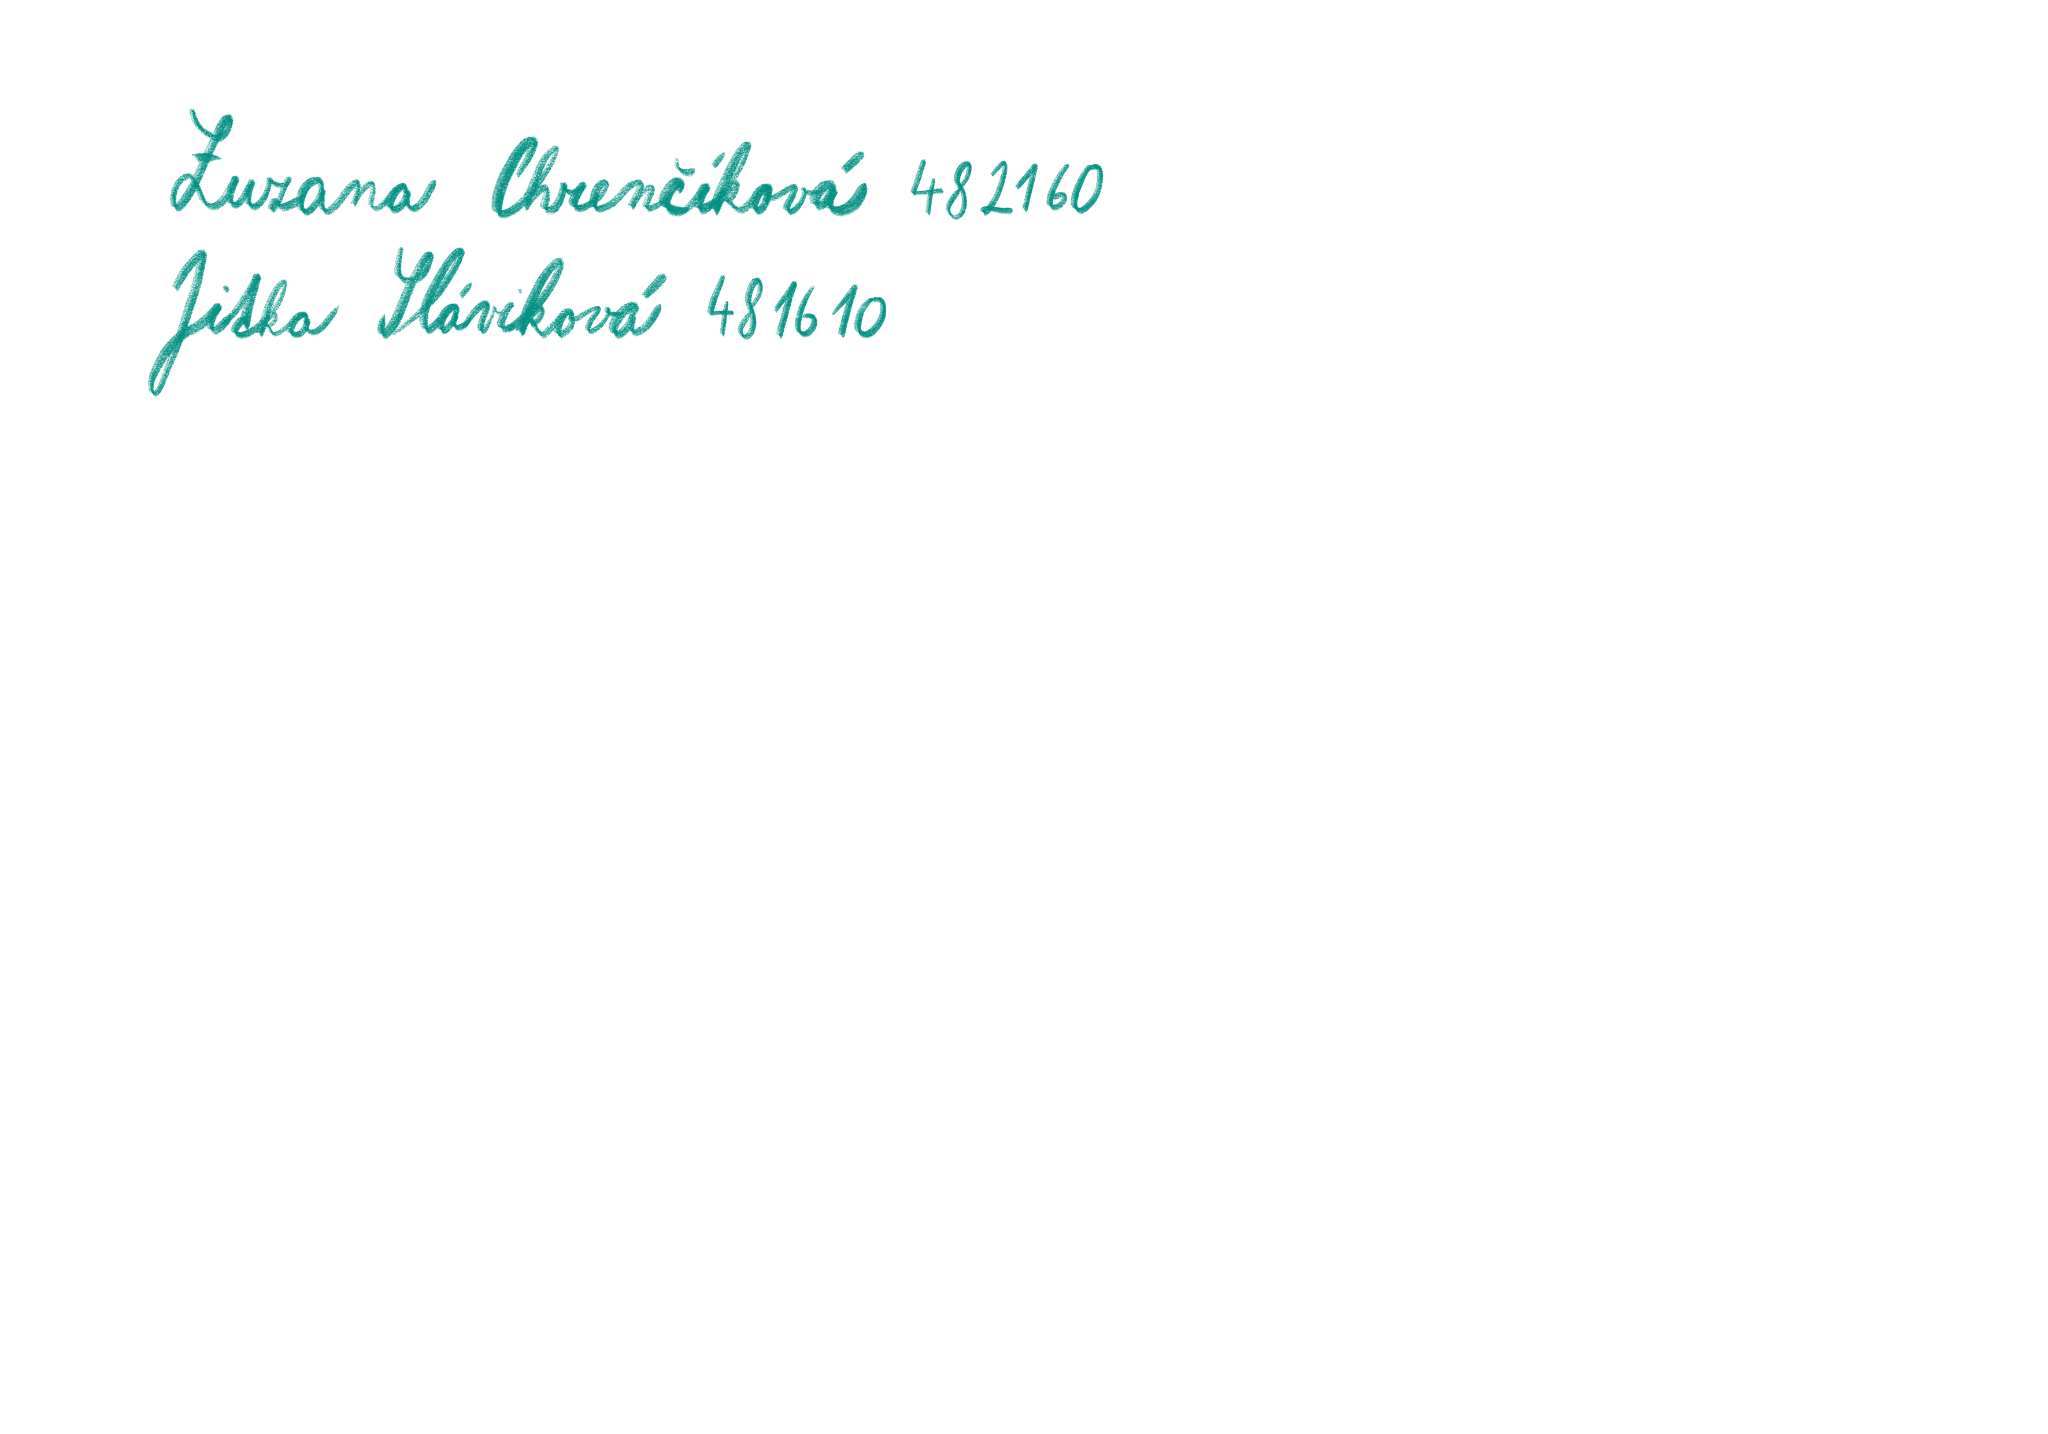 Zuzana Chrenčíková 482160
Jitka Sláviková 481610